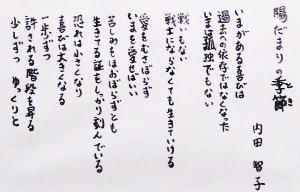 陽だまりの季節
とき
内田 智子
いまがある喜びは
過去への依存ではなくなった
いまは孤独でもない
戦いもない
戦士にならなくても生きていける
愛をむさぼらず
いまを愛せばいい
苦しみもほおばらずとも
生きてる証をしっかり刻んでいる
恐れは小さくなり
喜びは大きくなる
一歩ずつ
許される階段を昇る
少しずつ ゆっくりと